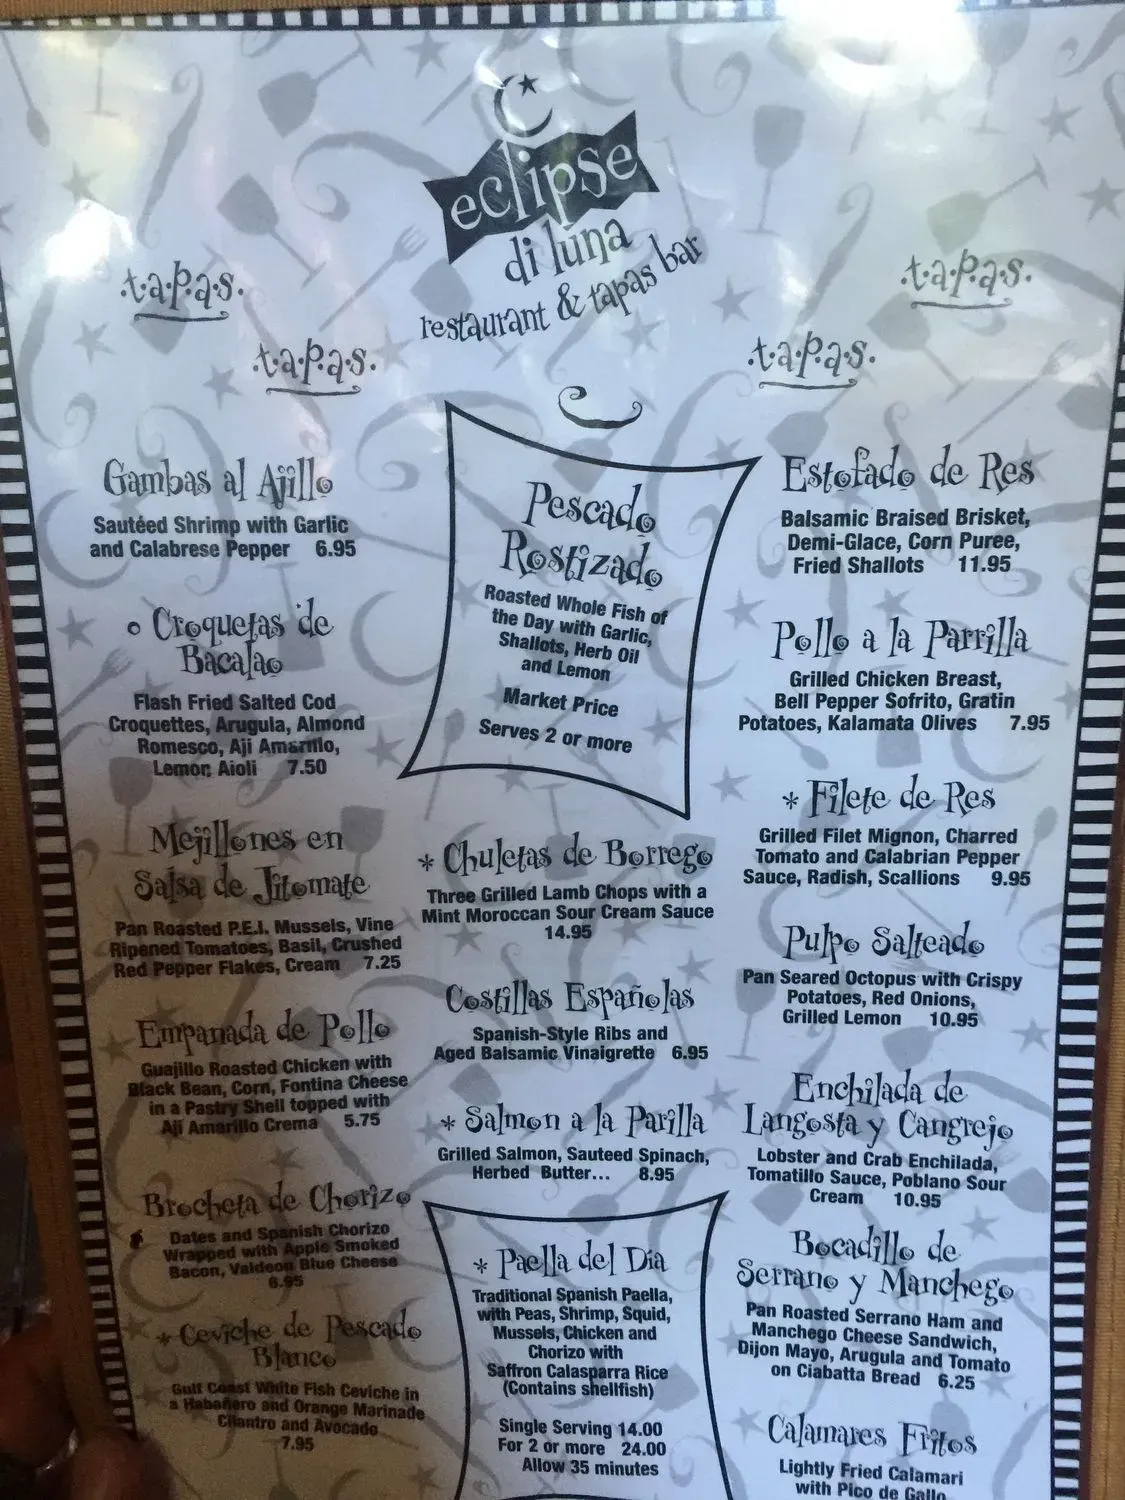 eclipse
di luna
restaurant & tapas bar
t.a.p.a.s.
t.a.p.a.s.
t.a.p.a.s.
t.a.p.a.s.
Gambas al Ajillo
Sautéed Shrimp with Garlic
and Calabrese Pepper 6.95
Croquetas de
Bacalao
Flash Fried Salted Cod
Croquettes, Arugula, Almond
Romesco, Aji Amarillo,
Lemon Aioli 7.50
Mejillones en
Salsa de Jitomate
Pan Roasted P.E.I. Mussels, Vine
Ripened Tomatoes, Basil, Crushed
Red Pepper Flakes, Cream 7.25
Empanada de Pollo
Guajillo Roasted Chicken with
Black Bean, Corn, Fontina Cheese
in a Pastry Shell topped with
Aji Amarillo Crema 5.75
Brocheta de Chorizo
Dates and Spanish Chorizo
Wrapped with Apple Smoked
Bacon, Valdeon Blue Cheese
6.95
* Ceviche de Pescado
Blanco
Gulf Coast White Fish Ceviche in
a Habañero and Orange Marinade
Cilantro and Avocado
7.95
Pescado
Rostizado
Roasted Whole Fish of
the Day with Garlic,
Shallots, Herb Oil
and Lemon
Market Price
Serves 2 or more
* Chuletas de Borrego
Three Grilled Lamb Chops with a
Mint Moroccan Sour Cream Sauce
14.95
Costillas Españolas
Spanish-Style Ribs and
Aged Balsamic Vinaigrette 6.95
* Salmon a la Parilla
Grilled Salmon, Sauteed Spinach,
Herbed Butter... 8.95
* Paella del Dia
Traditional Spanish Paella,
with Peas, Shrimp, Squid,
Mussels, Chicken and
Chorizo with
Saffron Calasparra Rice
(Contains shellfish)
Single Serving 14.00
For 2 or more 24.00
Allow 35 minutes
Estofado de Res
Balsamic Braised Brisket,
Demi-Glace, Corn Puree,
Fried Shallots 11.95
Pollo a la Parrilla
Grilled Chicken Breast,
Bell Pepper Sofrito, Gratin
Potatoes, Kalamata Olives 7.95
* Filete de Res
Grilled Filet Mignon, Charred
Tomato and Calabrian Pepper
Sauce, Radish, Scallions 9.95
Pulpo Salteado
Pan Seared Octopus with Crispy
Potatoes, Red Onions,
Grilled Lemon 10.95
Enchilada de
Langosta y Cangrejo
Lobster and Crab Enchilada,
Tomatillo Sauce, Poblano Sour
Cream 10.95
Bocadillo de
Serrano y Manchego
Pan Roasted Serrano Ham and
Manchego Cheese Sandwich,
Dijon Mayo, Arugula and Tomato
on Ciabatta Bread 6.25
Calamares Fritos
Lightly Fried Calamari
with Pico de Gallo